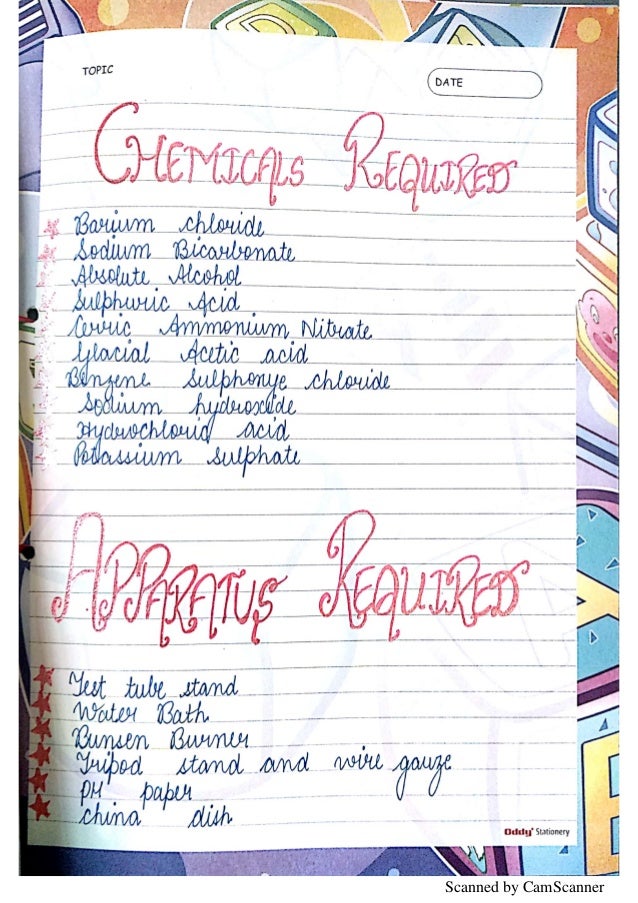 TOPIC
DATE
CHEMICALS REQUIRED
Barium chloride
Sodium Bicarbonate
Absolute Alcohol
Sulphuric Acid
Cerric Ammonium Nitrate
Glacial Acetic acid
Benzene Sulphonye chloride
Sodium hydroxide
Hydrochloric acid
Potassium sulphate
APPARATUS REQUIRED
Test tube stand
Water Bath
Bunsen Burner
Tripod stand and wire gauze
PH paper
china dish
Oddy Stationery
Scanned by CamScanner